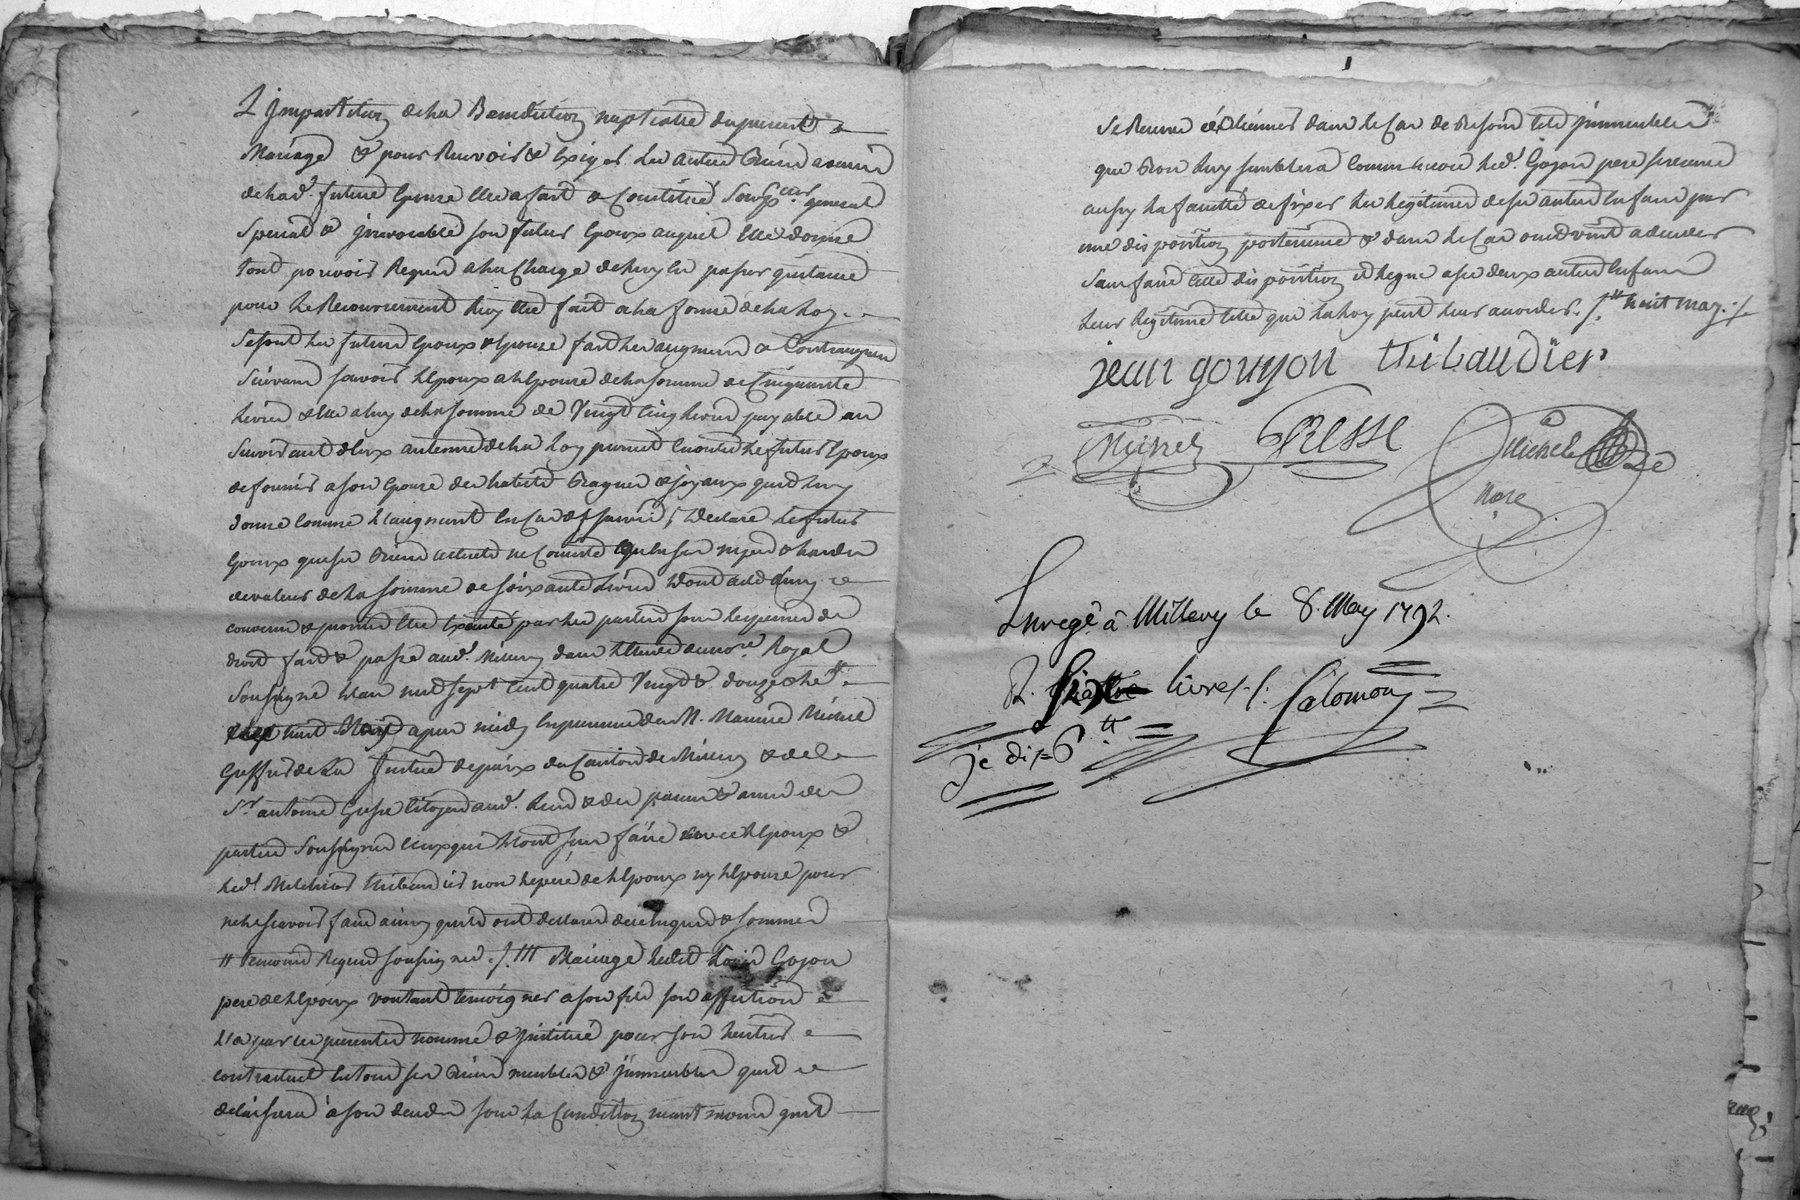 L'jmpartition de la Benediction nuptialle du present
Mariage & pour Recevoir & Exiger les autres Biens avenir
de lad. future Epouse Elle a fait & Constitué son general
Special & jrrevocable son futur Epoux auquel Elle donne
tout pouvoir Requis a la Charge de luy en passer quittance
pour le Recouvrement luy Etre fait a la forme de la Loy
Se font les futurs Epoux & Epouse fait les augment &
Suivant savoir l'Epoux a l'Epouse de la somme de Cinquante
livres & Elle a luy de la somme de Vingt Cinq livres payable au
Survivant d'Eux autorisé de la Loy promet Encorre le futur Epoux
de fournir a son Epouse des habits Bagues & joyaux quil luy
donne Comme l'augment En Cas de survie, declare le futur
Epoux que ses Biens actuels ne Consiste quen ses nipes & hardes
de valeur de la somme de soixante livres Dont acte ainsy
convenu & promis Etre Executé par les parties sous les peines de
droit fait & passé aud. Millery dans l'Etude du no.re Royal
Soussigné L'an mil sept cent quatre Vingt & douze & le
huit May apres midy En presence de M. Maurice Michel
Greffier de la justice de paix du Canton de Millery & de
Sr. antoine Gresse Citoyen aud. lieu & des parens & amis des
parties Soussignés Ceux qui L'ont sceu faire avec l'Epoux &
led. Melchior thibaudier non le pere de l'Epoux ny l'Epouse pour
ne le scavoir faire ainsy quils ont declaré de ce Enquis & sommés
temoins Requis soussignés ./. Mariage led. Louis Goyon
pere de l'Epoux voulant temoigner a son fils son affection
L'a par ces presentes nommé & jnstitué pour son heritier
contractuel En tous ses Biens meubles & jmmeubles quil
delaissera a son deces sous la Condition neant moins quil
Se Reserve des siennes dans le Cas de Besoin tels jmmeubles
que Bon luy semblera Comme Encore led. Goyon pere se reserve
aussy la faculté de fixer les legitimes de ses autres Enfans par
une disposition posterieure & dans le Cas ou il vint a deceder
Sans faire Cette disposition il legue a ses deux autres Enfans
leur legitime telle que la loy peut leur accorder ./. huit may ./.
jean gouyon thibaudier
GRESSE Michel
No.re
Enregé à Millery le 8. May 1792.
R. Six livres ./. Salomon
je dis 6 tt